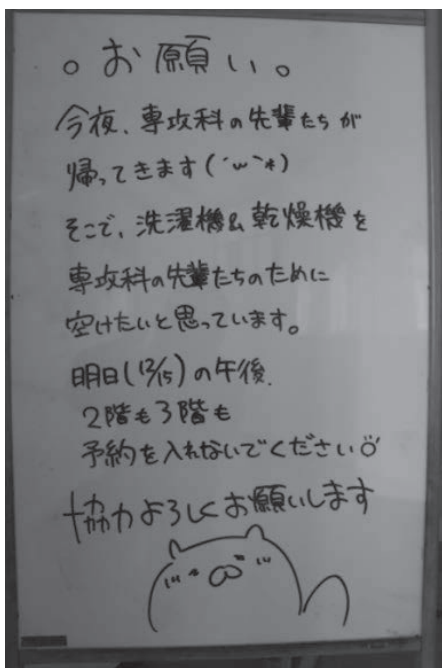 。お願い。
今夜、専攻科の先輩たちが
帰ってきます(´ω`*)
そこで、洗濯機&乾燥機を
専攻科の先輩たちのために
空けたいと思っています。
明日(12/15)の午後、
2階も3階も
予約を入れないでください
協力よろしくお願いします